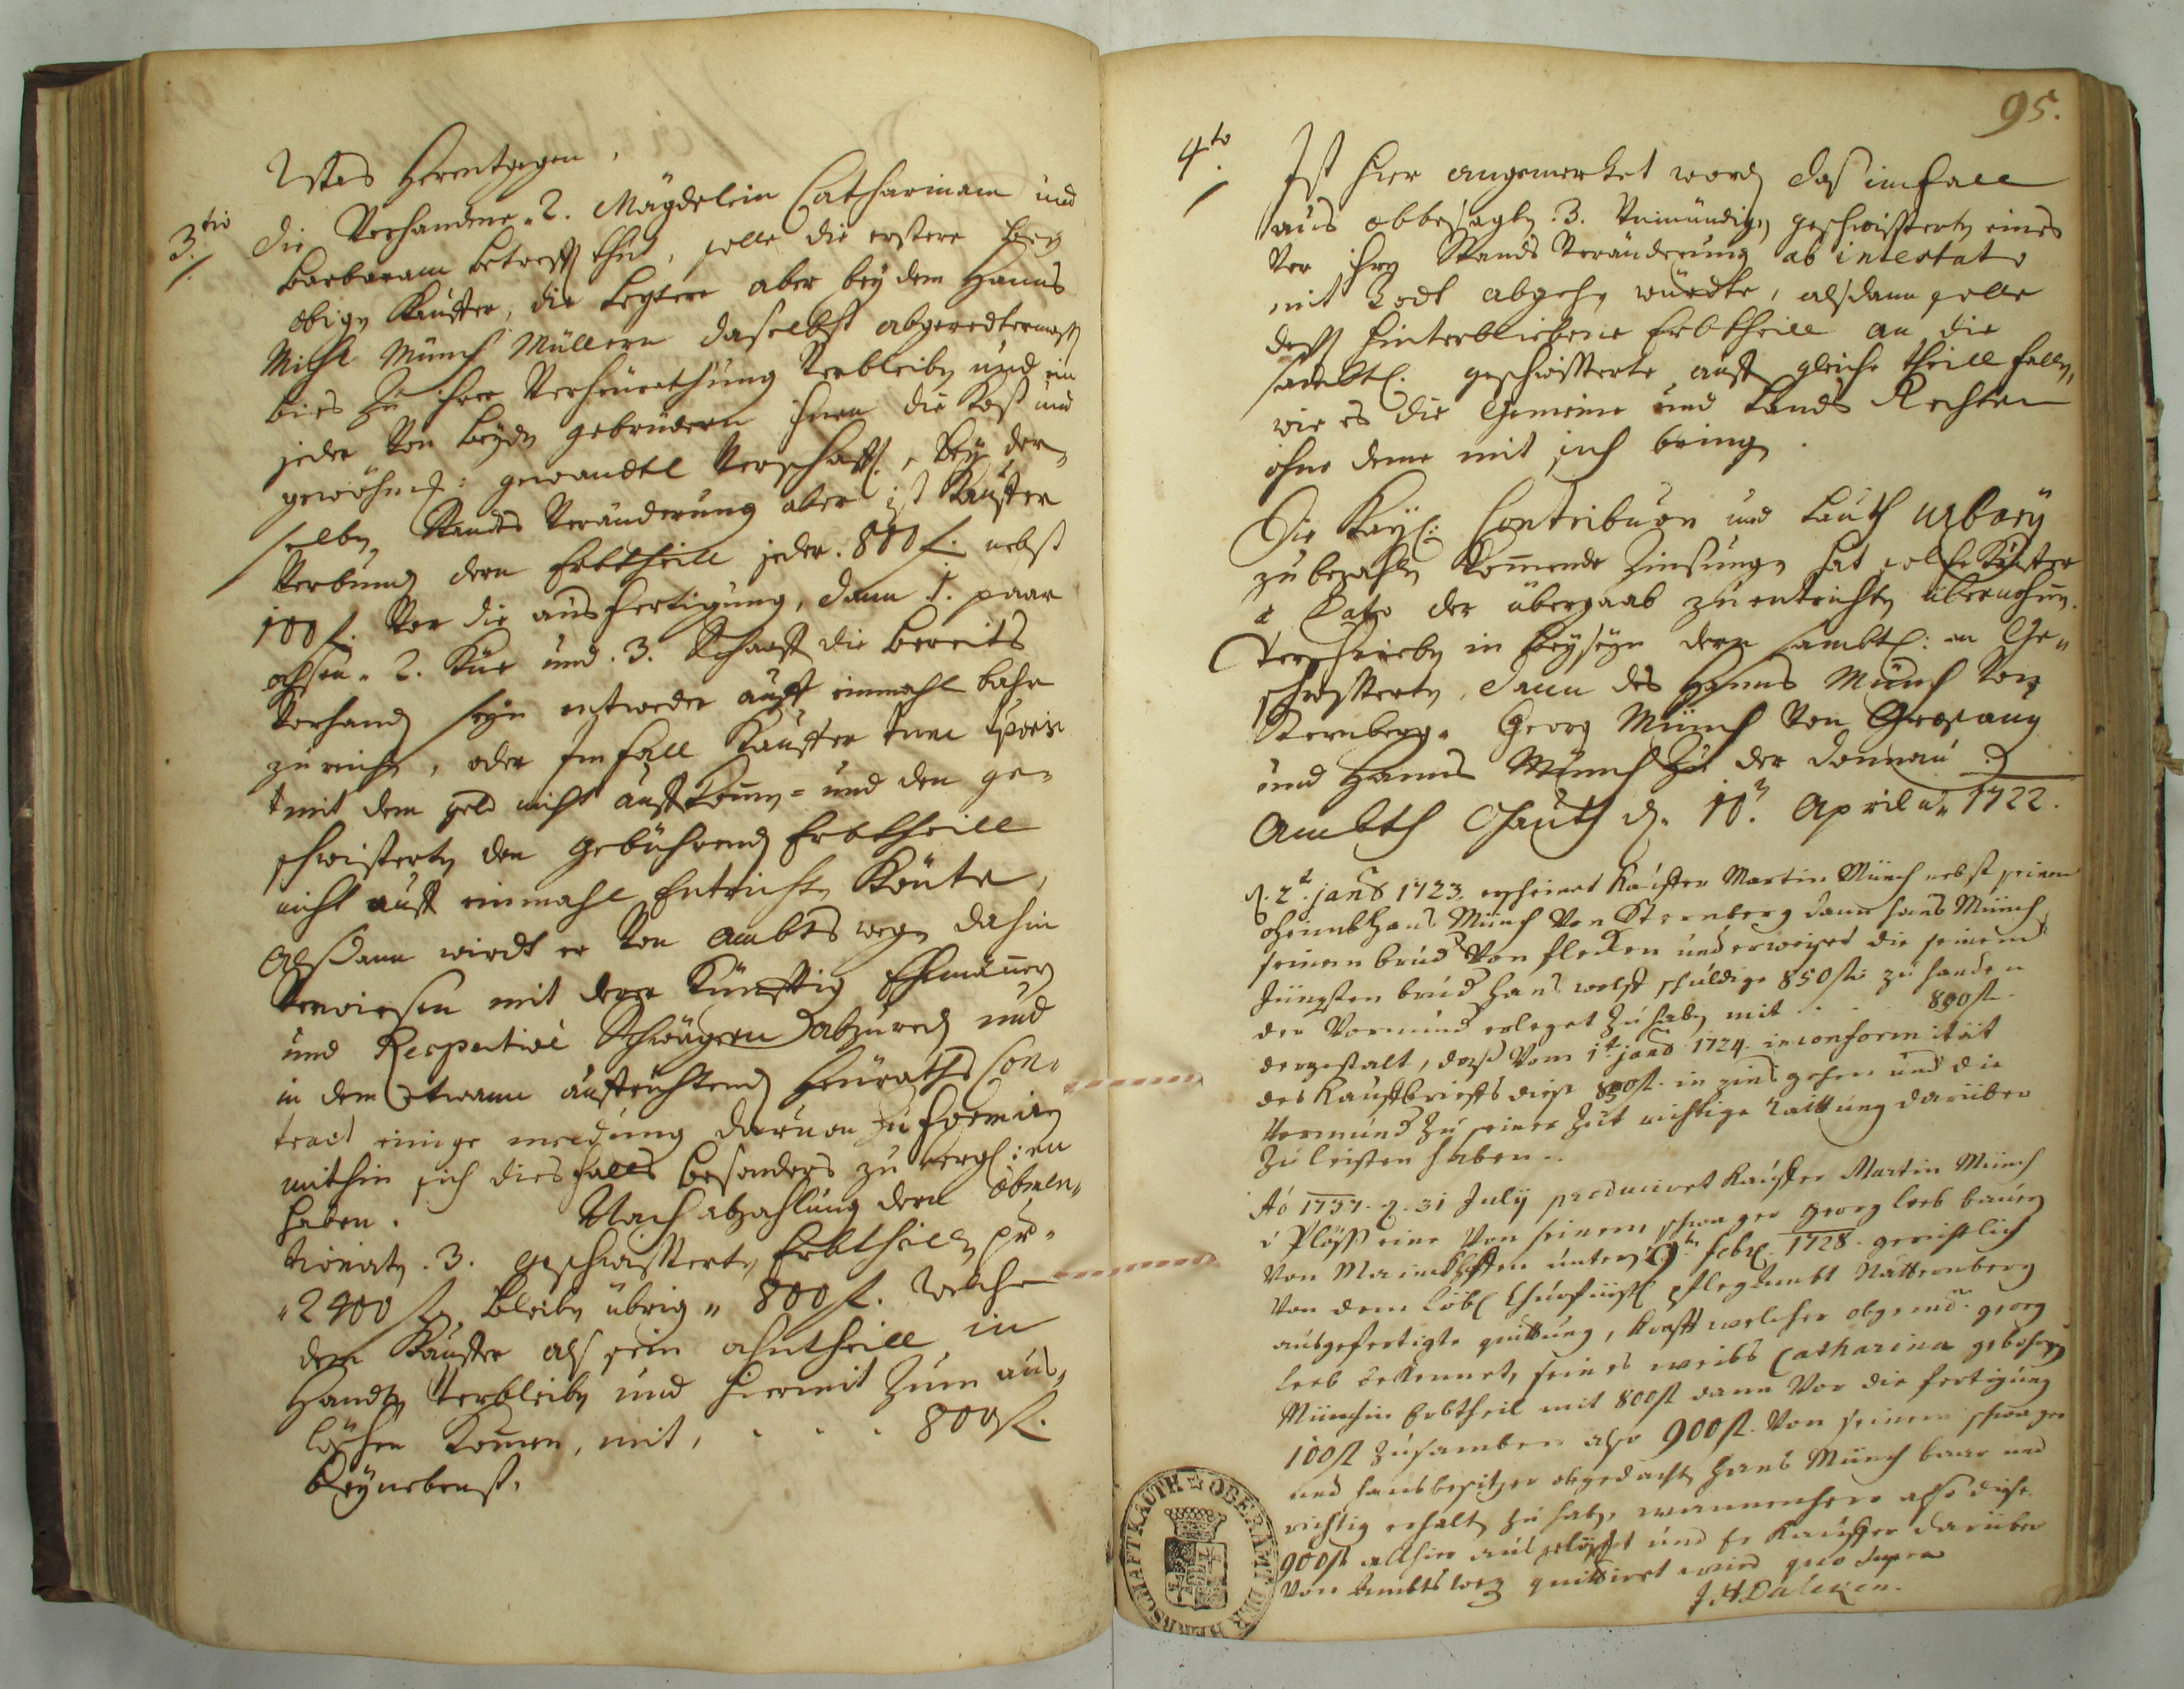 Istas Herentgegen,
3.tio die Verhandene 2. Mägdelein Catharinam und
Barbaram betreff. thut, solle die erstere bey
obigen Kauffer, die letztere aber bey dem Hanns
Michl Münch Müllern daselbst abgeredtermassen
bies zu ihrer Verheurathung verbleiben und ein
jeder von beyden gebrüdern ihnen die Kost und
gewöhnl: gewandtl verschaffen, bey der-
selben Standts Veränderung aber ist Kauffer
verbunden deren Erbtheill jeder 800 f. nebst
100 f. vor die ausfertigung, dann 1. paar
ochsen, 2. Küe und 3. Schaaff die bereits
Vorhanden seyn entweder auff einmahl bahr
zu reichen, oder im fall Kauffer
mit dem geld nicht auffkommen und den ge-
schwisterten den gebührenden Erbtheill
nicht auff einmahl Entrichten könte,
Alsdann wirdt er von ambts wegen dahin
verwiesen mit deren künfftig Ehemännern
und Respective Schwägern abzureden und
in dem Etwann auffrichtend Heuraths Con-
tract einige meldung davon zu formiren
mithin sich diesfalls besonders zu vergl:en
haben. Nach abzahlung deren obmen-
tionirten 3. geschwisterten Erbtheillen pr.
2400 f. bleiben übrig 800 f. welche
dem Kauffer als sein antheill in
Handten verbleiben und hiermit zum aus-
löschen kommen, mit, . . . 800 f.
Beynebenst,
95.
4.to Ist hier angemerket worden das im fall
aus obbesagten 3. Unmündigen geschwisterten eines
vor ihren Stands Veränderung ab intestato
mit Todt abgehen würdte, alsdann solle
dessen hinterbliebene Erbtheill an die
sambtl. geschwisterte auff gleiche theill fallen,
wie es die Gemeine und Lands Rechten
ohne deme mit sich bringen.
Die Kayl: Contribuon und Lauth urbary
zu bezahlen kommende Zinsungen hat solche Kauffer
a Dato der übergaab zu entrichten übernohmen.
Verschrieben in beyseyn deren sambtl:en Ge-
schwisterten, dann des Hanns Münch von
Sternberg, Georg Münch von Grosaug
und Hanns Münch zu der Donnau
Ambth Chauth d. 10. April a. 1722.
d. 2t. jan. 1723. erscheinet Kauffer Martin Münch nebst seinem
ohemb Hans Münch von Sternberg dann hans Münch
seinen brud. von flecken und erweiset die seinem
Jüngsten brud. Hans welst schuldige 850 fl. zu handen
der Vormund erleget zu haben mit . . . 890 fl.
dergestalt, dass vom 1t. jan. 1724. in conformität
des Kauffbrieffs diese 890 fl. in zins gehen und die
Vormund zu seiner Zeit richtige raittung darüber
zu leisten haben.
Ao 1737. d. 31 July producirt Kauffer Martin Münch
eine von seinem schwager georg leeb bauern
von unterm 9ten febr. 1728. gerichtlich
von dem löbl Churfürstl pfleg Ambt Natternberg
ausgefertigte quittung, krafft welcher obgemelt. georg
leeb bekennet, seines weibs Catharina gebohren
Münchin Erbtheil mit 800 fl dann vor die fertigung
100 fl zusamben also 900 fl. von seinem schwager
und hausbesitzer obgedacht hans Münch baar und
richtig erhalten zu haben, wannenhero also diese
900 fl allhier ausgelöschet und Er Kauffer darüber
von Ambts weg quittiret wird quo supra
OBERAMT DER HERRSCHAFT KAUTH